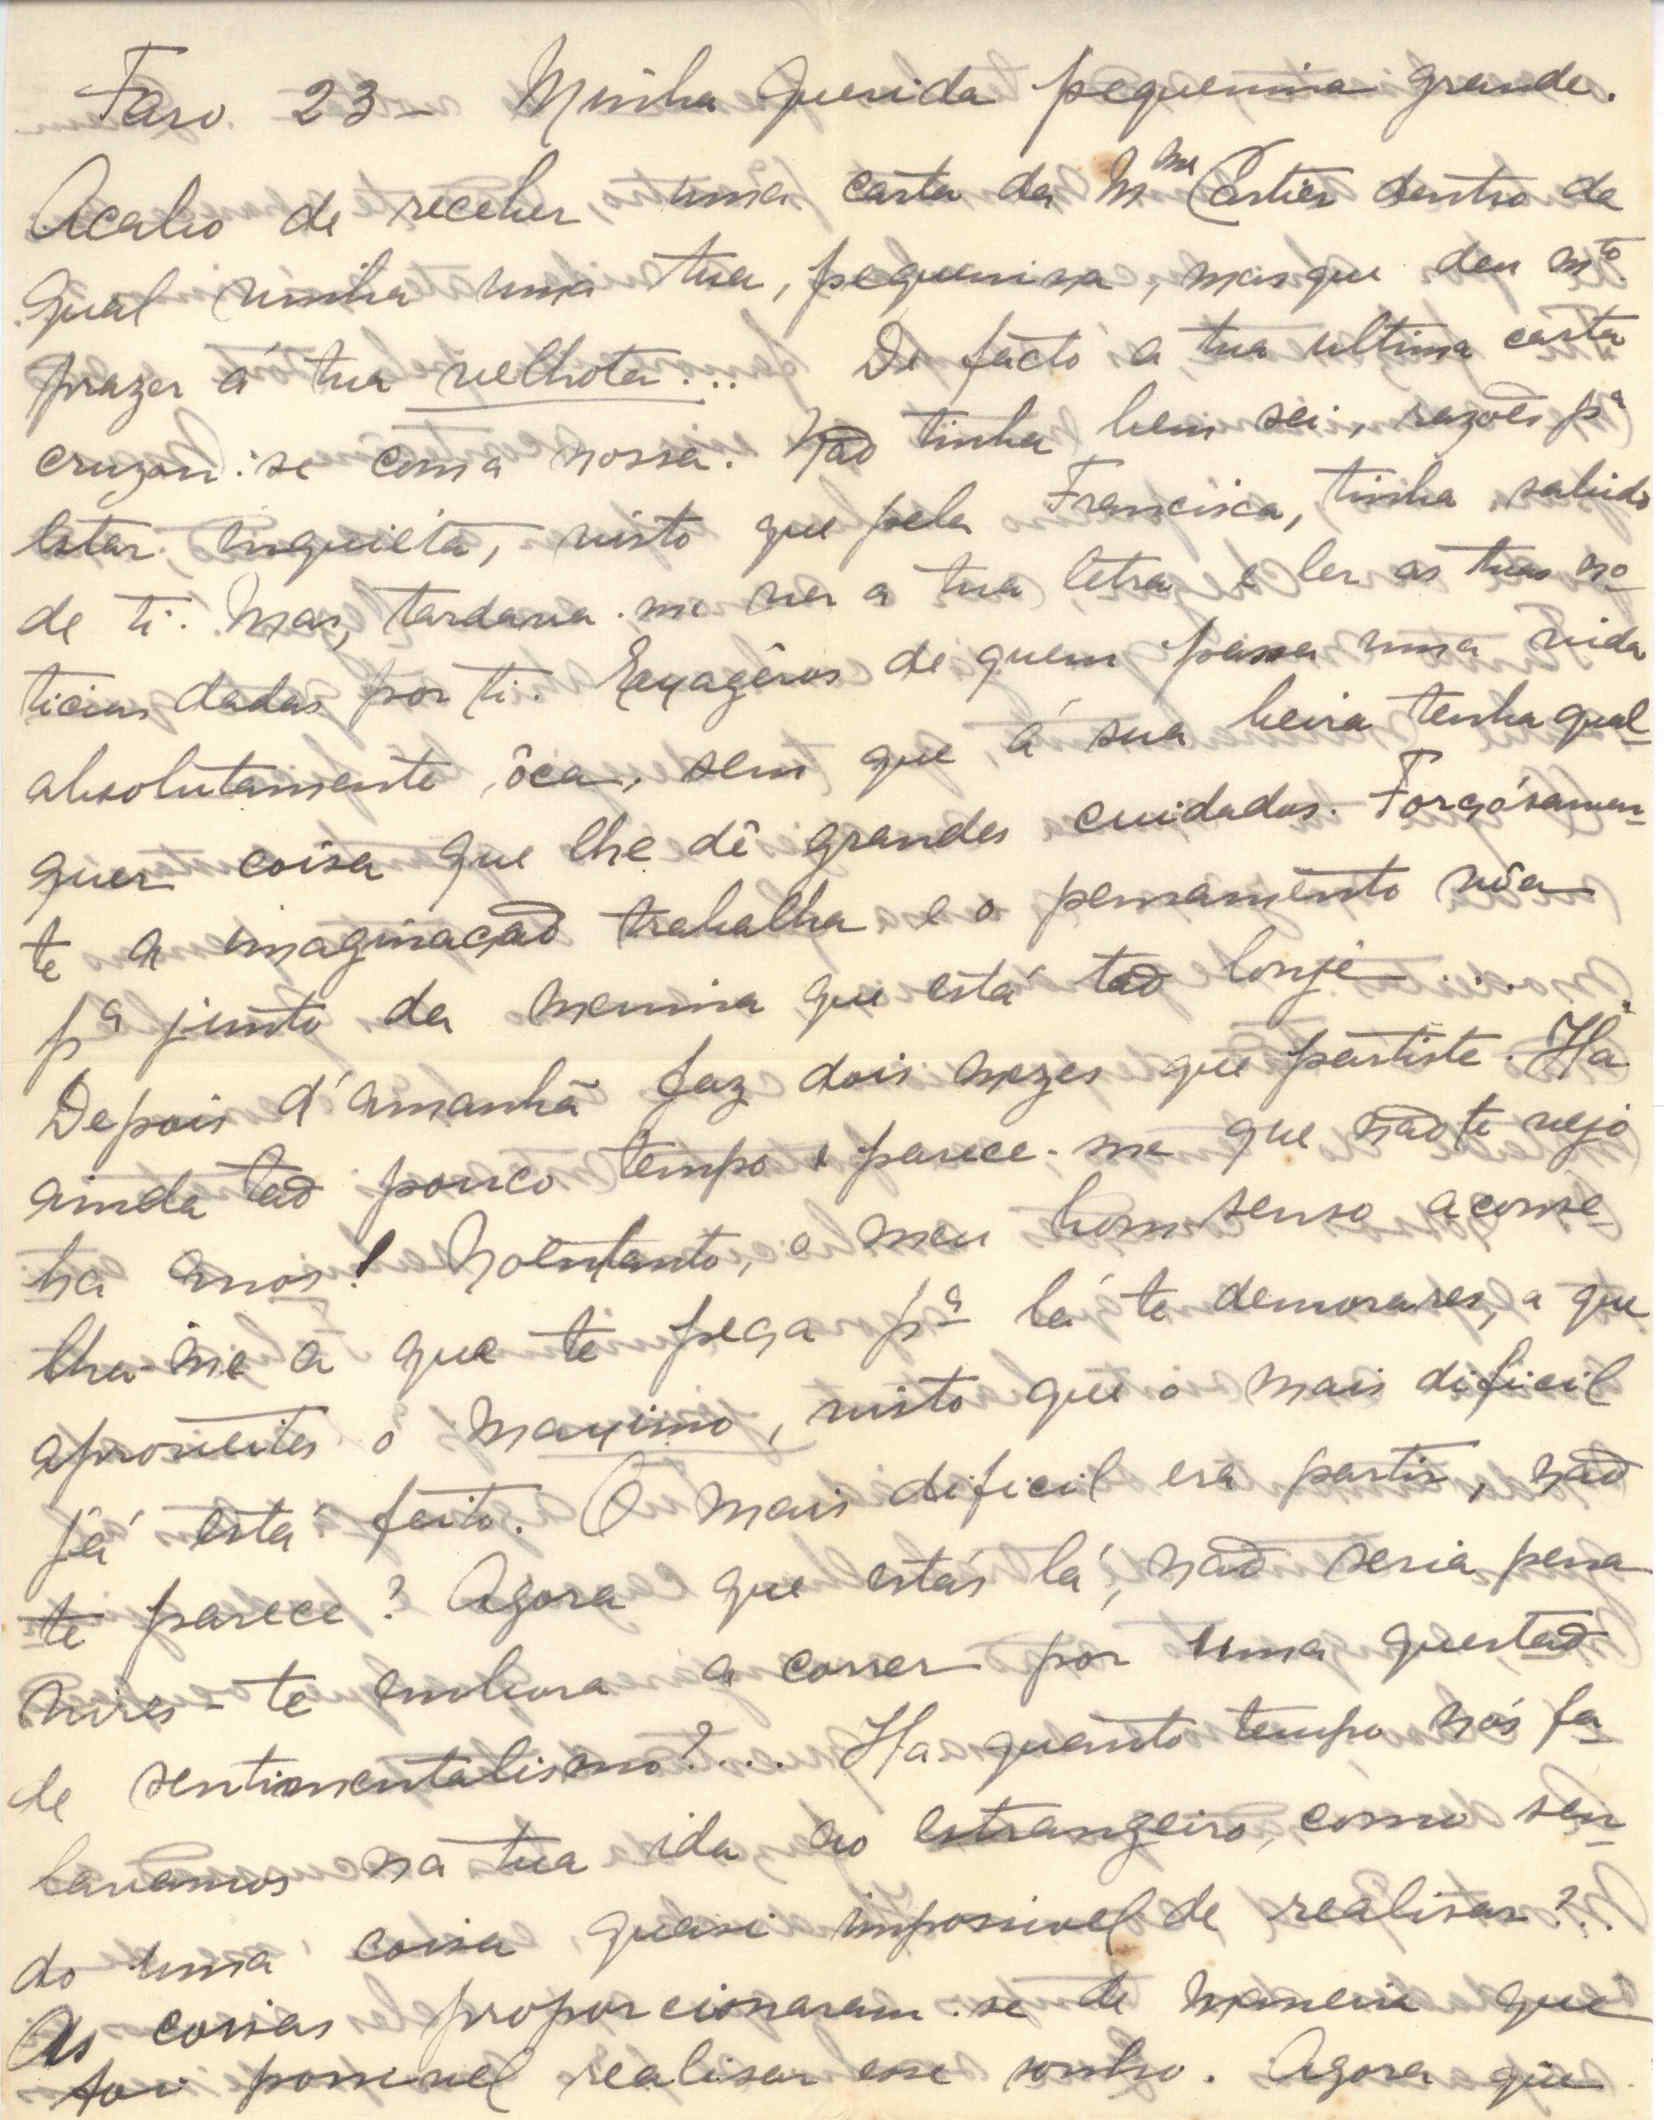 Faro 23 - Minha querida pequenina grande.
Acabo de receber uma carta da Mme Cartier dentro da
qual vinha uma tua, pequenina, mas que deu mto.
prazer á tua velhota... De facto a tua ultima carta
cruzou-se com a nossa. Não tinha bem sei, razões pª
estar inquieta, visto que pela Francisca, tinha sabido
de ti. Mas, tardava-me ver a tua letra e ler as tuas no-
ticias dadas por ti. Exagêros de quem passa uma vida
absolutamente ôca, sem que á sua beira tenha qual-
quer coisa que lhe dê grandes cuidados. Forçósamen-
te a imaginação trabalha e o pensamento vôa
pª junto da menina que está tão longe...
Depois d'amanhã faz dois mezes que partiste. Ha
ainda tão pouco tempo e parece-me que não te vejo
ha anos! Noentanto, o meu bom senso aconse-
lha-me a que te peça pª lá te demorares, a que
aproveites o maximo, visto que o mais dificil
já está feito. O mais dificil era partir, não
te parece? Agora que estás lá, não seria pena
vires-te embora a correr por uma questão
de sentimentalismo?... Ha quanto tempo nós fa-
lavamos na tua ida ao estrangeiro, como sen-
do uma coisa quasi impossivel de realisar?..
As coisas proporcionaram-se de maneira que
foi possivel realisar esse sonho. Agora que